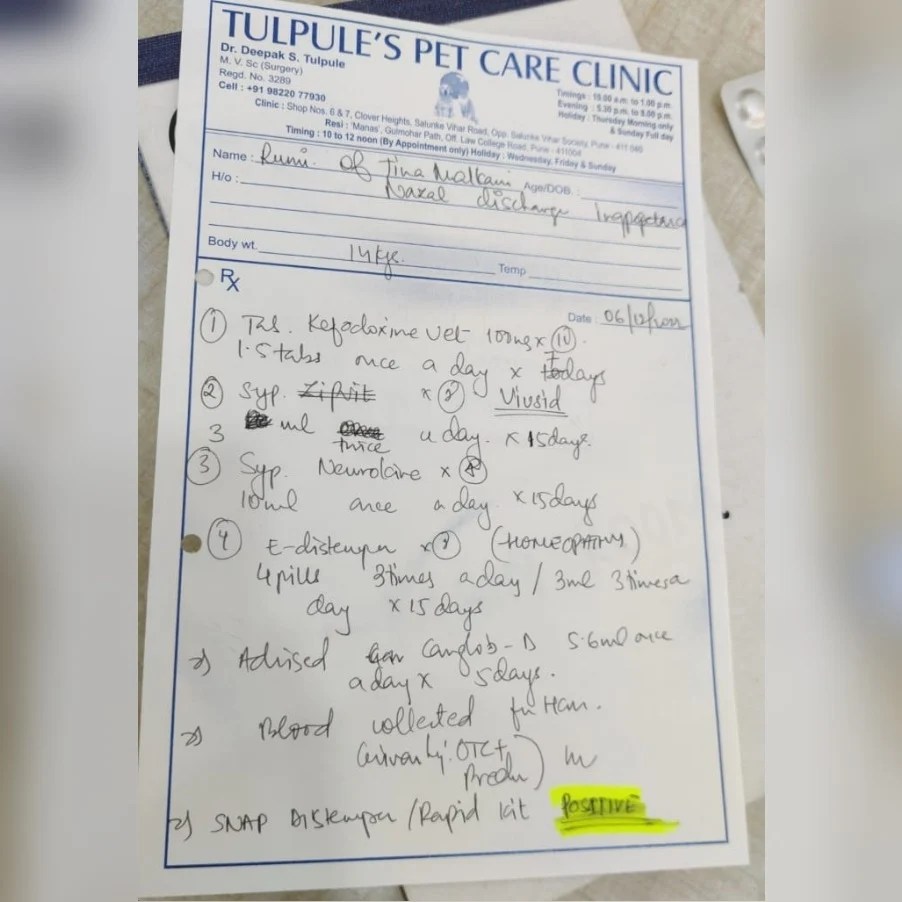 TULPULE'S PET CARE CLINIC
Dr. Deepak S. Tulpule
M. V. Sc (Surgery)
Regd. No. 3289
Cell : +91 98220 77930
Timings : 10.00 a.m. to 1.00 p.m.
Evening : 5.30 p.m. to 8.00 p.m.
Holiday : Thursday Morning only
& Sunday Full day
Clinic : Shop Nos. 6 & 7, Clover Heights, Salunke Vihar Road, Opp. Salunke Vihar Society, Pune - 411
Resi : 'Manas', Gulmohar Path, Off. Law College Road, Pune - 411004
Timing : 10 to 12 noon (By Appointment only) Holiday : Wednesday, Friday & Sunday
Name : Rumi of Tina Malkani Age/DOB :
H/o : Nazal discharge
Body wt. 14kgs. Temp
Rx
Date : 06/12/
① Tab. Kefodoxime vet 100mg x ⑩.
1.5 tabs once a day x days
② Syp. Zifvit x Viusid
3 ml twice a day. x 15days.
③ Syp. x
10ml once a day x 15days
④ E-distemper x (HOMEOPATHY)
4 pills 3times a day / 3ml 3times a
day x 15 days
Advised Canglob-D 5.6ml once
a day x 5days.
Blood collected for
SNAP Distemper /Rapid kit POSITIVE